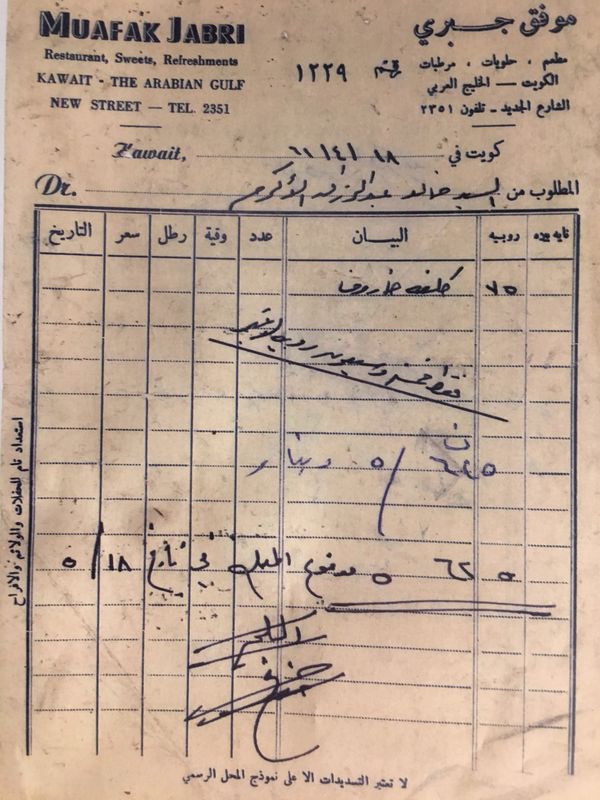 MUAFAK JABRI
Restaurant, Sweets, Refreshments
KAWAIT - THE ARABIAN GULF
NEW STREET — TEL. 2351
موفق جبري
مطعم ، حلويات ، مرطبات
الكويت — الخليج العربي
الشارع الجديد ـ تلفون ٢٣٥١
١٢٢٩
Kawait,
كويت في ١٨ / ٤ / ٦١
المطلوب من السيد خالد عبدالرزاق الأكرم Dr.
نايه بيزه روبيه البيان عدد وقية رطل سعر التاريخ
٧٥ كلفة خاروف
فقط خمسة وسبعون روبيه لا غير
دينار
مدفوع المبلغ في تاريخ ١٨ / ٥
المستلم
استعداد تام للحفلات والولائم والافراح
لا تعتبر التسديدات الا على نموذج المحل الرسمي